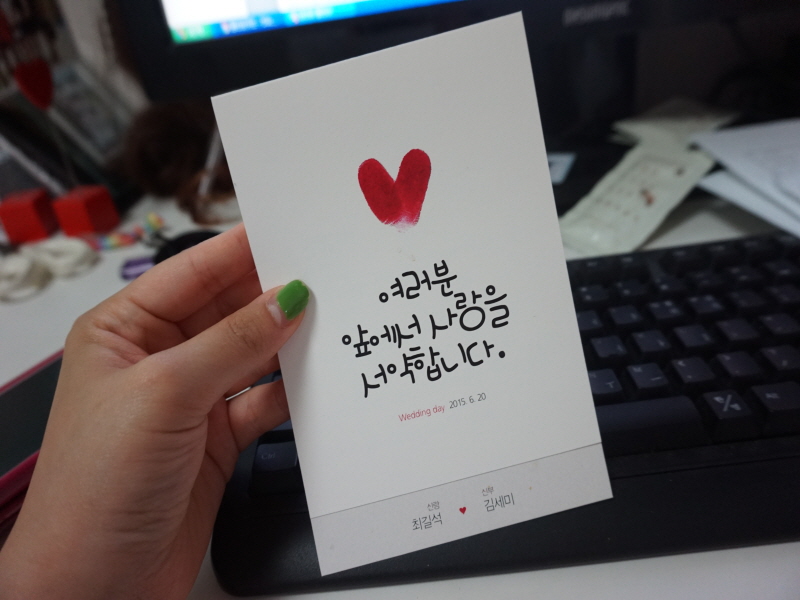 여러분
앞에서 사랑을
서약합니다.
Wedding day 2015. 6. 20
신랑 신부
최길석 ♥ 김세미